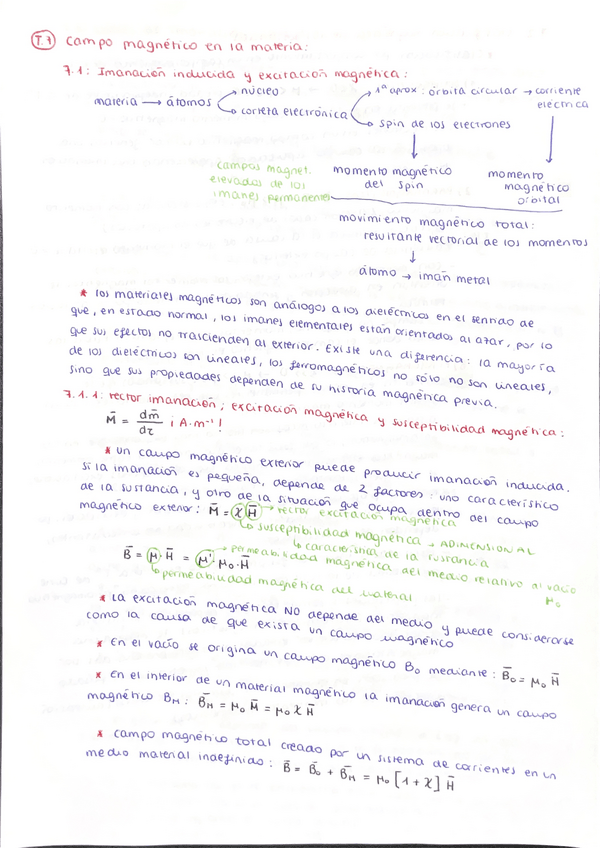 T.7 Campo magnético en la materia:
7.1: Imanación inducida y excitación magnética:
materia → átomos
núcleo
corteza electrónica
1ª aprox: órbita circular → corriente eléctrica
spin de los electrones
campos magnet. elevados de los imanes permanentes
momento magnético del spin
momento magnético orbital
movimiento magnético total:
resultante vectorial de los momentos
átomo → imán metal
* los materiales magnéticos son análogos a los dieléctricos en el sentido de
que, en estado normal, los imanes elementales están orientados al azar, por lo
que sus efectos no trascienden al exterior. Existe una diferencia: la mayoría
de los dieléctricos son lineales, los ferromagnéticos no sólo no son lineales,
sino que sus propiedades dependen de su historia magnética previa.
7.1.1: vector imanación; excitación magnética y susceptibilidad magnética:
M̄ = dm̄/dτ ; A·m⁻¹!
* un campo magnético exterior puede producir imanación inducida.
Si la imanación es pequeña, depende de 2 factores: uno característico
de la sustancia, y otro de la situación que ocupa dentro del campo
magnético exterior: M̄ = χ H̄ → vector excitación magnética
↳ susceptibilidad magnética → ADIMENSIONAL
↳ característica de la sustancia
B̄ = μ·H̄ = μ'·μ₀·H̄ → permeabilidad magnética del medio relativo al vacío μ₀
↳ permeabilidad magnética del material
* La excitación magnética NO depende del medio y puede considerarse
como la causa de que exista un campo magnético
* En el vacío se origina un campo magnético B₀ mediante: B̄₀ = μ₀ H̄
* En el interior de un material magnético la imanación genera un campo
magnético B_M: B̄_M = μ₀ M̄ = μ₀ χ H̄
* campo magnético total creado por un sistema de corrientes en un
medio material indefinido: B̄ = B̄₀ + B̄_M = μ₀ [1 + χ] H̄